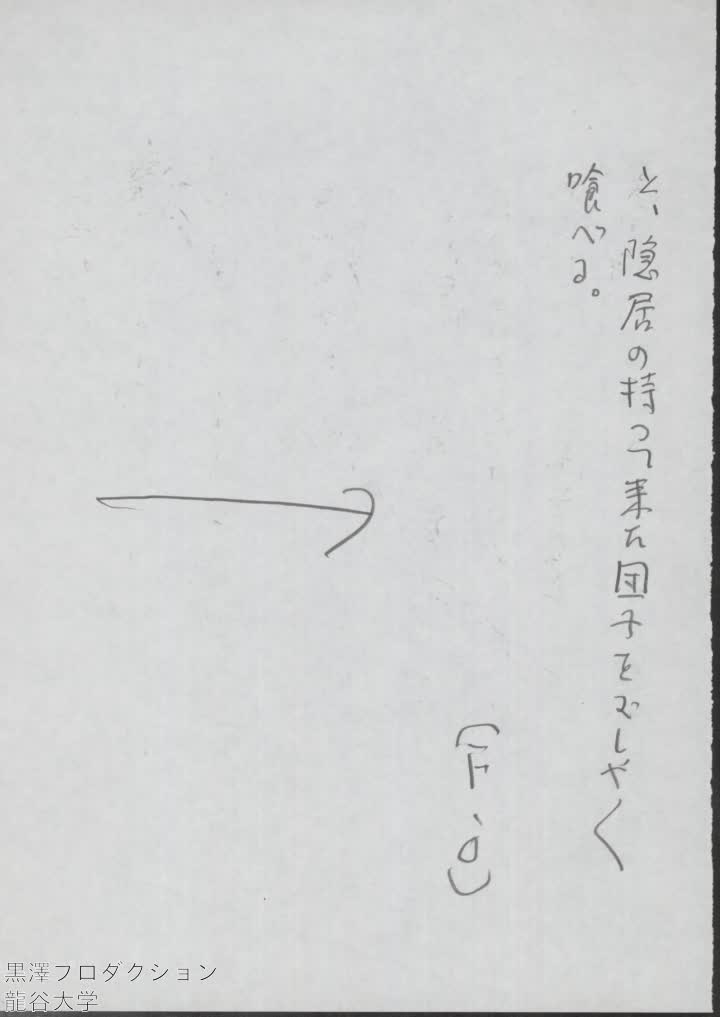 と、隠居の持って来た団子をむしゃ〱
喰べる。
(F・O)
黒澤プロダクション
龍谷大学